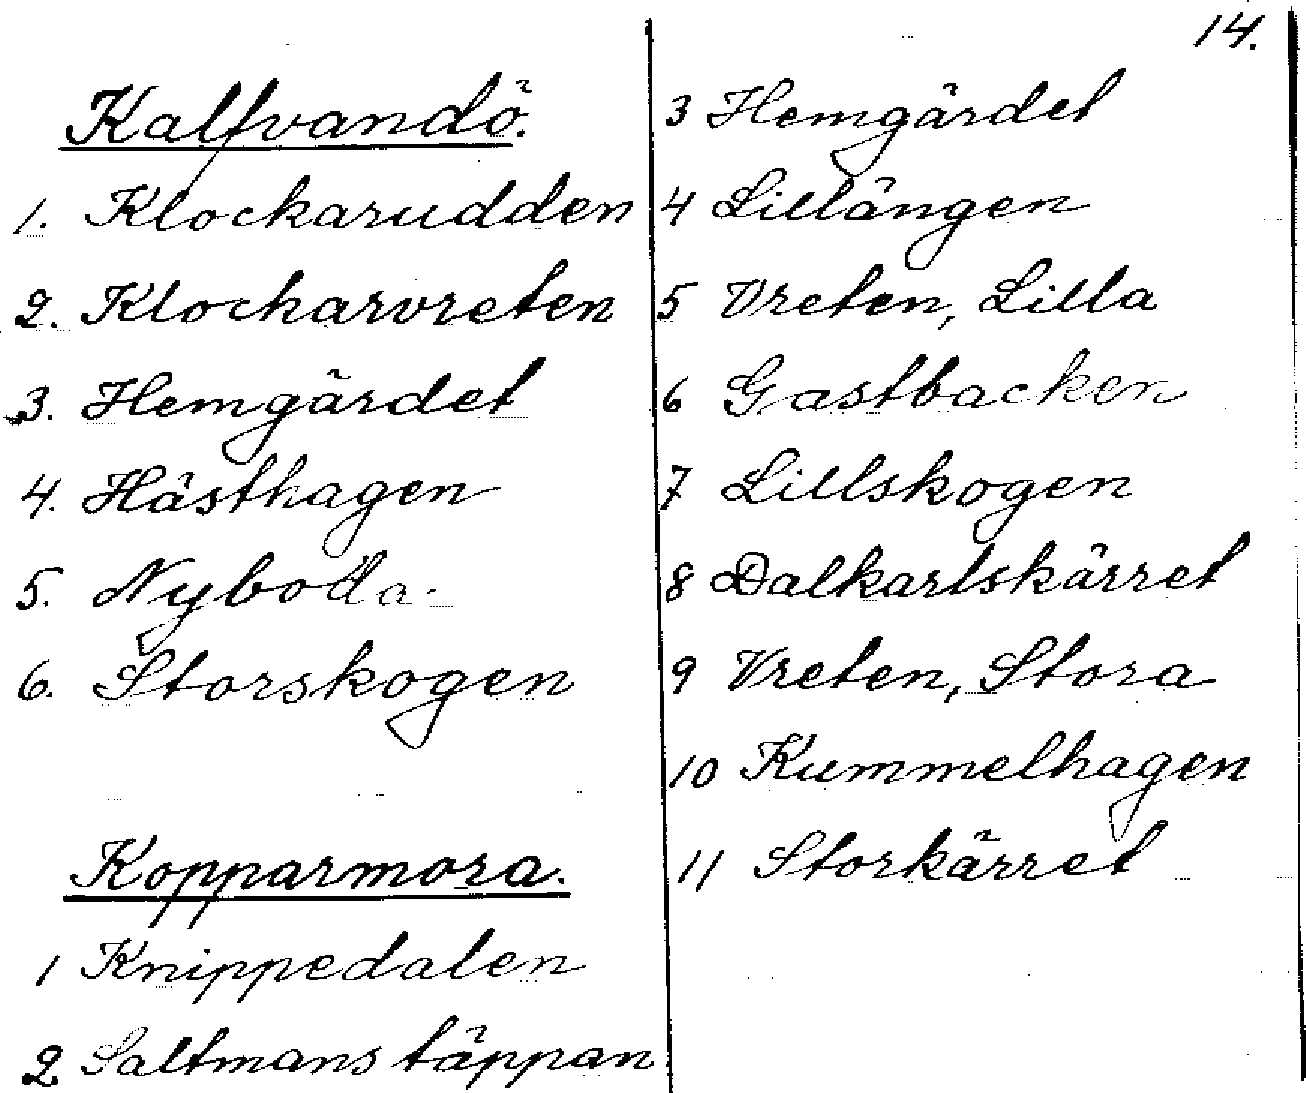 14.
Kalfvandö.
1. Klockarudden
2. Klockarvreten
3. Hemgärdet
4. Hästhagen
5. Nyboda.
6. Storskogen
Kopparmora.
1 Knippedalen
2 Saltmans täppan
3 Hemgärdet
4 Lillängen
5 Vreten, Lilla
6 Gastbacken
7 Lillskogen
8 Dalkarlskärret
9 Vreten, Stora
10 Kummelhagen
11 Storkärret